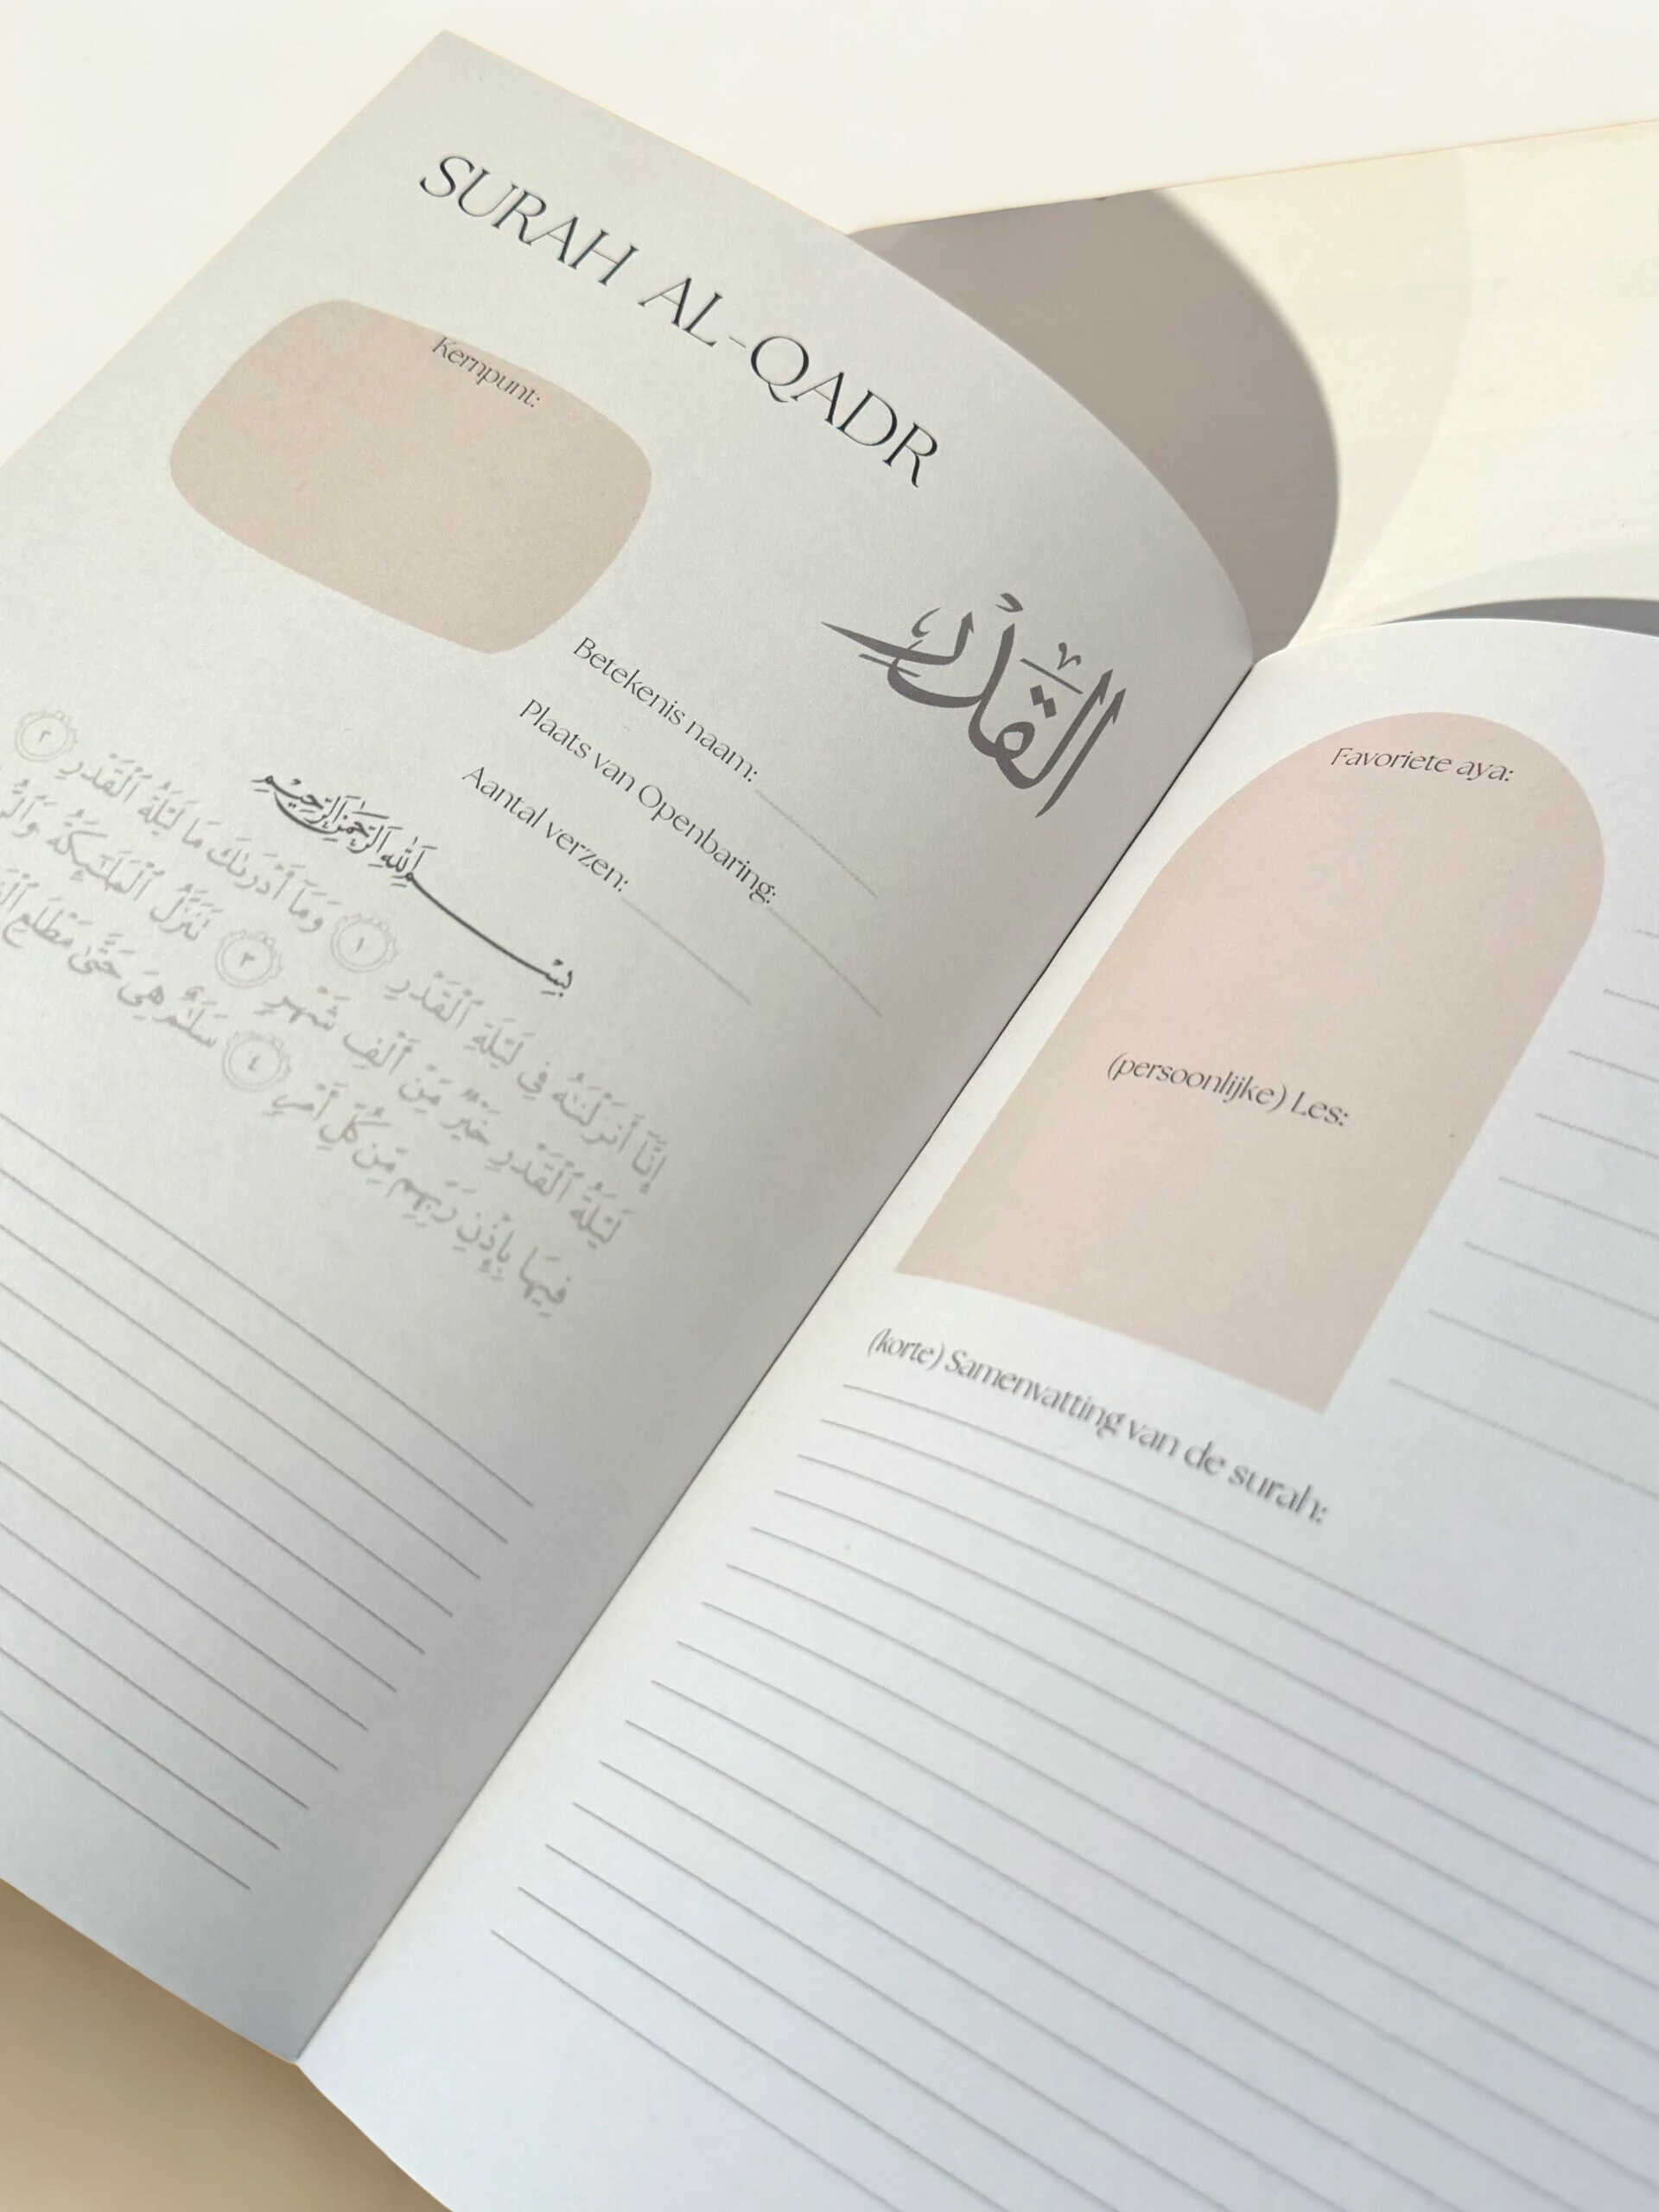 SURAH AL-QADR
Kernpunt:
القدر
Betekenis naam:
Plaats van Openbaring:
Aantal verzen:
بِسْمِ ٱللَّهِ ٱلرَّحْمَٰنِ ٱلرَّحِيمِ
إِنَّآ أَنزَلْنَٰهُ فِي لَيْلَةِ ٱلْقَدْرِ ١ وَمَآ أَدْرَىٰكَ مَا لَيْلَةُ ٱلْقَدْرِ ٢
لَيْلَةُ ٱلْقَدْرِ خَيْرٌ مِّنْ أَلْفِ شَهْرٍ ٣ تَنَزَّلُ ٱلْمَلَٰٓئِكَةُ
فِيهَا بِإِذْنِ رَبِّهِم مِّن كُلِّ أَمْرٍ ٤ سَلَٰمٌ هِيَ حَتَّىٰ مَطْلَعِ
Favoriete aya:
(persoonlijke) Les:
(korte) Samenvatting van de surah: